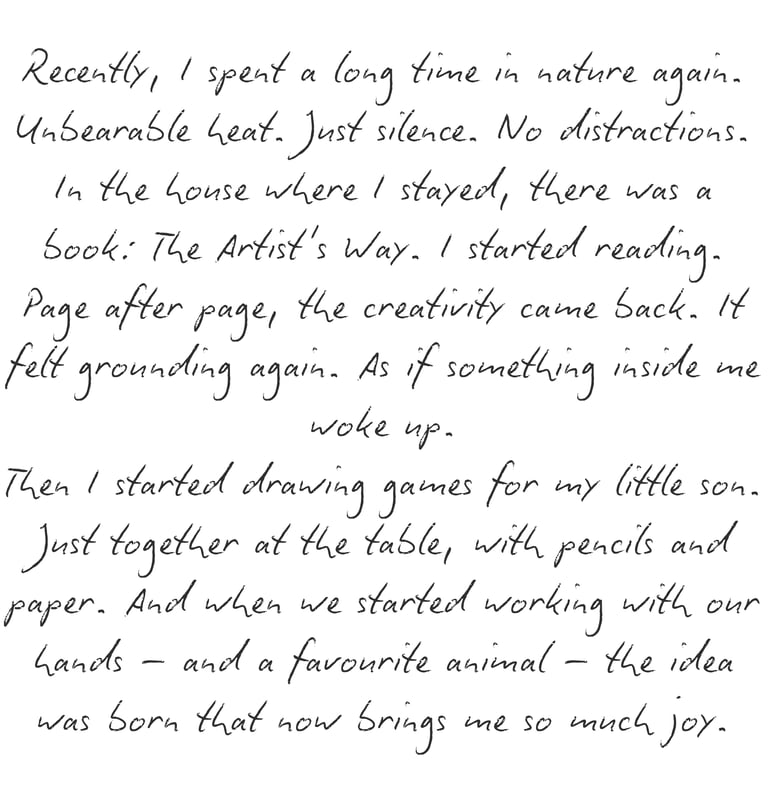 Recently, I spent a long time in nature again.
Unbearable heat. Just silence. No distractions.
In the house where I stayed, there was a
book: The Artist's Way. I started reading.
Page after page, the creativity came back. It
felt grounding again. As if something inside me
woke up.
Then I started drawing games for my little son.
Just together at the table, with pencils and
paper. And when we started working with our
hands – and a favourite animal – the idea
was born that now brings me so much joy.